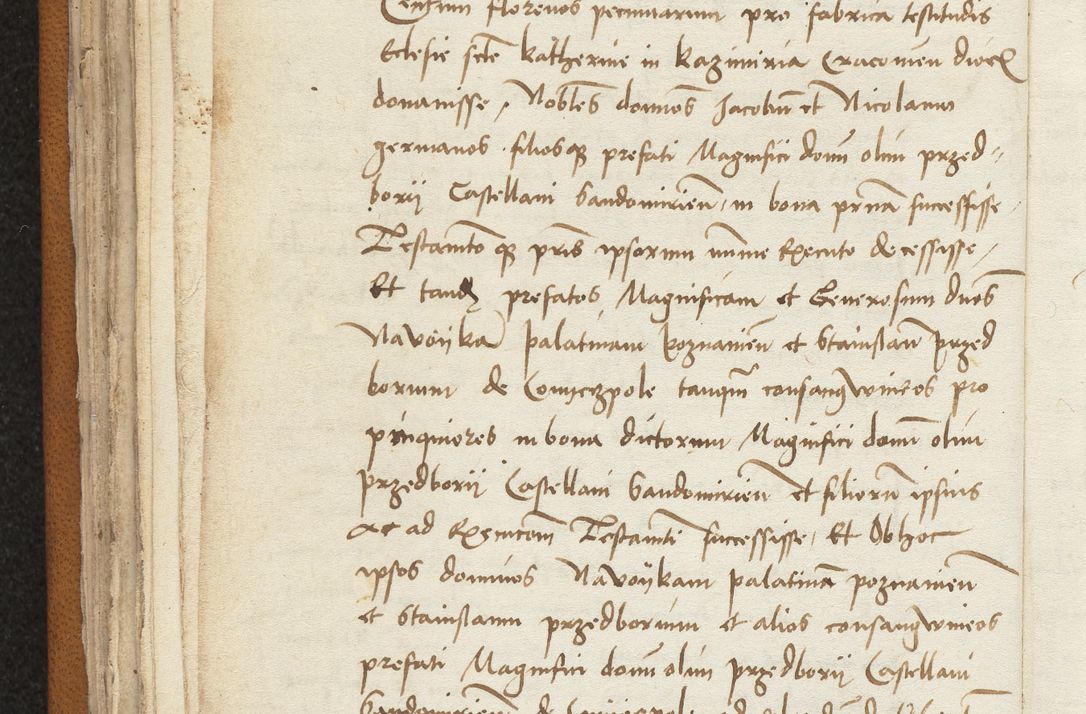 Centum florenos pecuniarum pro fabrica testitudis
Eclesie scte katherine in kazimiria Cracouien dioc
donauisse, Nobles domnos Jacobum et Nicolaum
germanos filiosq prefati Magnifici domi olim przed-
borij Castellani Sandomirien, in bona prnta successisse
Testamto q pris ipsorum minime executo decessisse,
Et tandem prefatos Magnificum et Generosum dnos
Navoijka palatinum poznanien et Stanislaum przed
borium de Conyeczpole tanquam consangwineos pro
pinquiores in bona dictorum Magnifici domi olim
przedborij Castellani Sandomirien et filiorum ipsius
ac ad executionem Testamti successisse, Et Obhoc
ipsos dominos Navoijkam palatinum poznanien
et Stanislaum przedborium et alios consangwineos
prefati Magnifici domi olim przedborij Castellani
Sandomirien de Conyeczpole